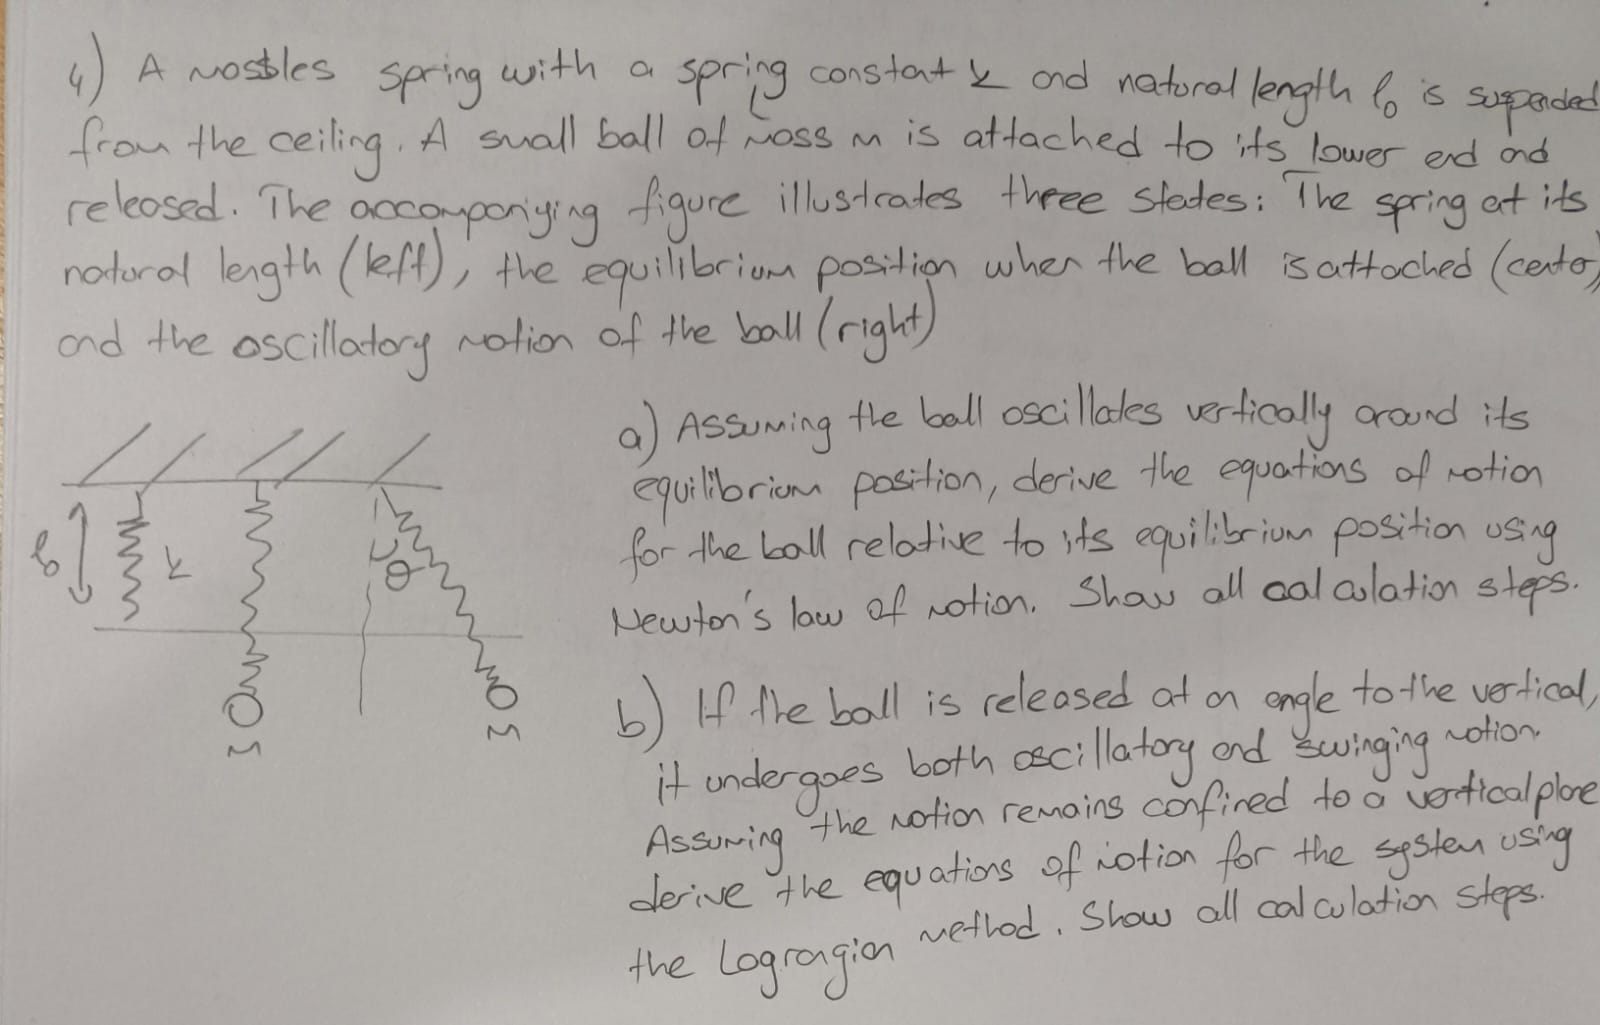 4) A massles spring with a spring constant k and natural length l₀ is suspended
from the ceiling. A small ball of mass m is attached to its lower end and
released. The accompanying figure illustrates three states: The spring at its
natural length (left), the equilibrium position when the ball is attached (center)
and the oscillatory motion of the ball (right)
a) Assuming the ball oscillates vertically around its
equilibrium position, derive the equations of motion
for the ball relative to its equilibrium position using
Newton's law of motion. Show all calculation steps.
l₀
k
θ
m
m
b) If the ball is released at an angle to the vertical,
it undergoes both oscillatory and swinging motion.
Assuming the motion remains confined to a vertical plane
derive the equations of motion for the system using
the Lagrangian method. Show all calculation steps.